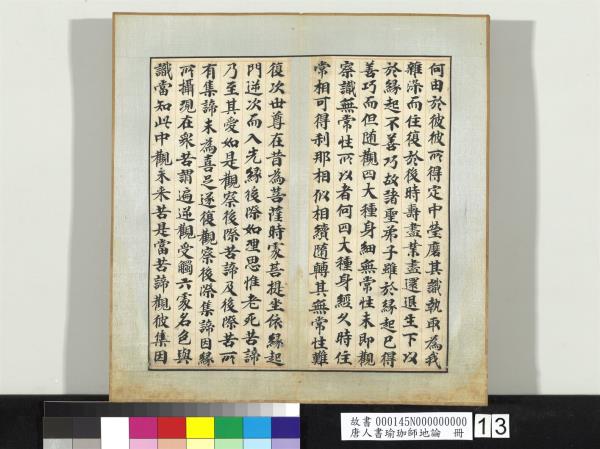 何由於彼彼所得定中瑩磨其識執取為我
雜染而住復於後時壽盡業盡還退生下以
於緣起不善巧故諸聖弟子雖於緣起已得
善巧而但隨觀四大種身細無常性未即觀
察識無常性所以者何四大種身經久時住
常相可得刹那相似相續隨轉其無常性難
復次世尊在昔為菩薩時處菩提坐依緣起
門逆次而入先緣後際如理思惟老死苦諦
乃至其愛如是觀察後際苦諦及後際苦所
有集諦未為喜足遂復觀察後際集諦因緣
所攝現在衆苦謂遍逆觀受觸六處名色與
識當知此中觀未來苦是當苦諦觀彼集因
故書 000145N000000000
唐人書瑜珈師地論 冊
13